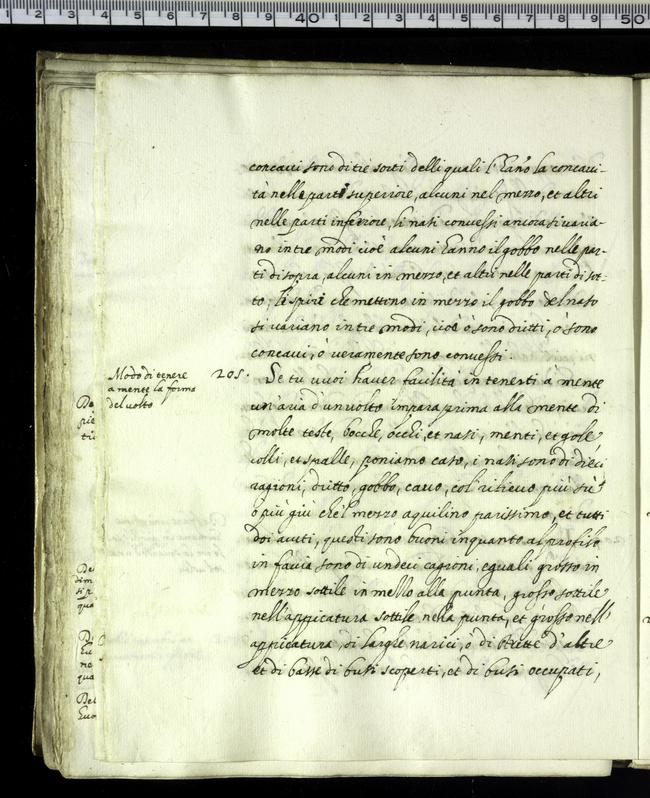 40
50
concavi sono di tre sorti delli quali l'hano la concavi-
tà nelle parti superiore, alcuni nel mezzo, et altri
nelle parti inferiore, li nasi convessi ancora si varia-
no in tre modi cioè alcuni hanno il gobbo nelle par-
ti di sopra, alcuni in mezzo, et altri nelle parti di sot-
to, li spiri che mettono in mezzo il gobbo del naso
si variano in tre modi, cioè ò sono diritti, ò sono
concavi, ò veramente sono convessi.
Modo di tenere
a mente la forma
del volto
205. Se tu vuoi haver facilità in tenerti a mente
un'aria d'un volto impara prima alla mente di
molte teste, bocche, occhi, et nasi, menti, et gole,
colli, et spalle, poniamo caso, i nasi sono di dieci
ragioni, dritto, gobbo, cavo, col rilievo più sù
ò più giù che'l mezzo aquilino parissimo, et tutti
doi acuti, questi sono buoni inquanto al profilo
in faccia sono di undeci cagioni, eguali grosso in
mezzo sottile in mello alla punta, grosso sottile
nell'appicatura sottile nella punta, et grosso nell'
appicatura, di larghe narici, ò di strette d'alte
et di basse di busi scoperti, et di busi occupati,